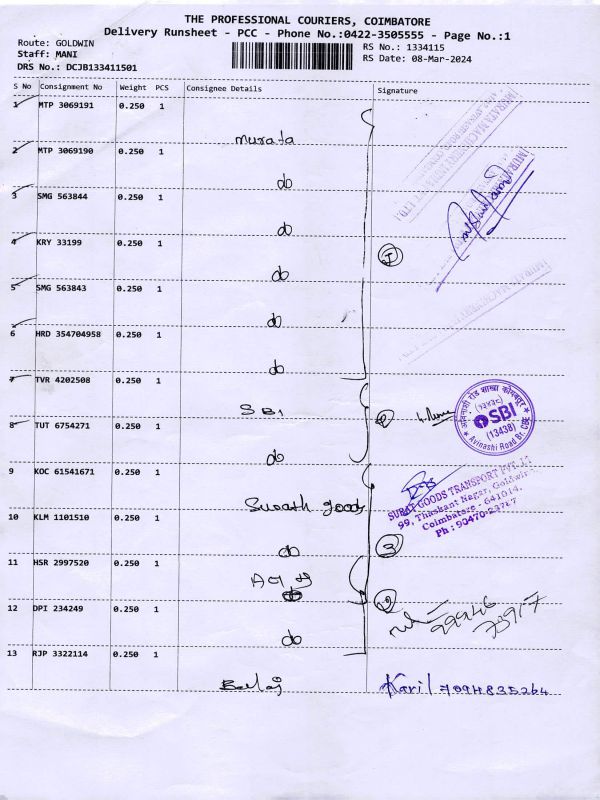 THE PROFESSIONAL COURIERS, COIMBATORE
Delivery Runsheet - PCC - Phone No.:0422-3505555 - Page No.:1
Route: GOLDWIN
Staff: MANI
DRS No.: DCJB133411501
RS No.: 1334115
RS Date: 08-Mar-2024
S No Consignment No Weight PCS Consignee Details Signature
1 MTP 3069191 0.250 1
murata
2 MTP 3069190 0.250 1
do
3 SMG 563844 0.250 1
do
4 KRY 33199 0.250 1
do
5 SMG 563843 0.250 1
do
6 HRD 354704958 0.250 1
do
7 TVR 4202508 0.250 1
SBI
8 TUT 6754271 0.250 1
do
9 KOC 61541671 0.250 1
Surath goods
10 KLM 1101510 0.250 1
do
11 HSR 2997520 0.250 1
12 DPI 234249 0.250 1
do
13 RJP 3322114 0.250 1
Balaj
SBI
(13438)
Avinashi Road Br. CBE
SURAT GOODS TRANSPORT PVT. LTD
99, Thikshant Nagar, Goldwins
Coimbatore - 641014.
3
99946
73917
7094835264